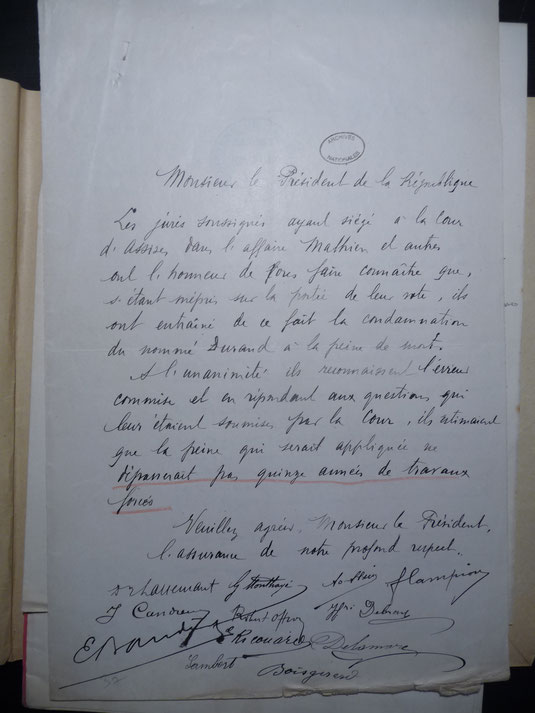 ARCHIVES
NATIONALES
Monsieur le Président de la République
Les jurés soussignés ayant siégé à la Cour
d'Assises dans l'affaire Mathien et autres
ont l'honneur de Vous faire connaître que,
s'étant mépris sur la portée de leur vote, ils
ont entraîné de ce fait la condamnation
du nommé Durand à la peine de mort.
A l'unanimité ils reconnaissent l'erreur
commise et en répondant aux questions qui
leur étaient soumises par la Cour, ils estimaient
que la peine qui serait appliquée ne
dépasserait pas quinze années de travaux
forcés
Veuillez agréer, Monsieur le Président,
l'assurance de notre profond respect.
Hampion
E. Ricouard Delamare
Lambert Boisgerard